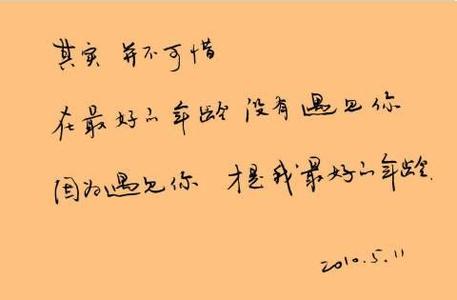 其实 并不可惜
在最好的年龄 没有遇见你
因为遇见你 才是我最好的年龄.
2010.5.11